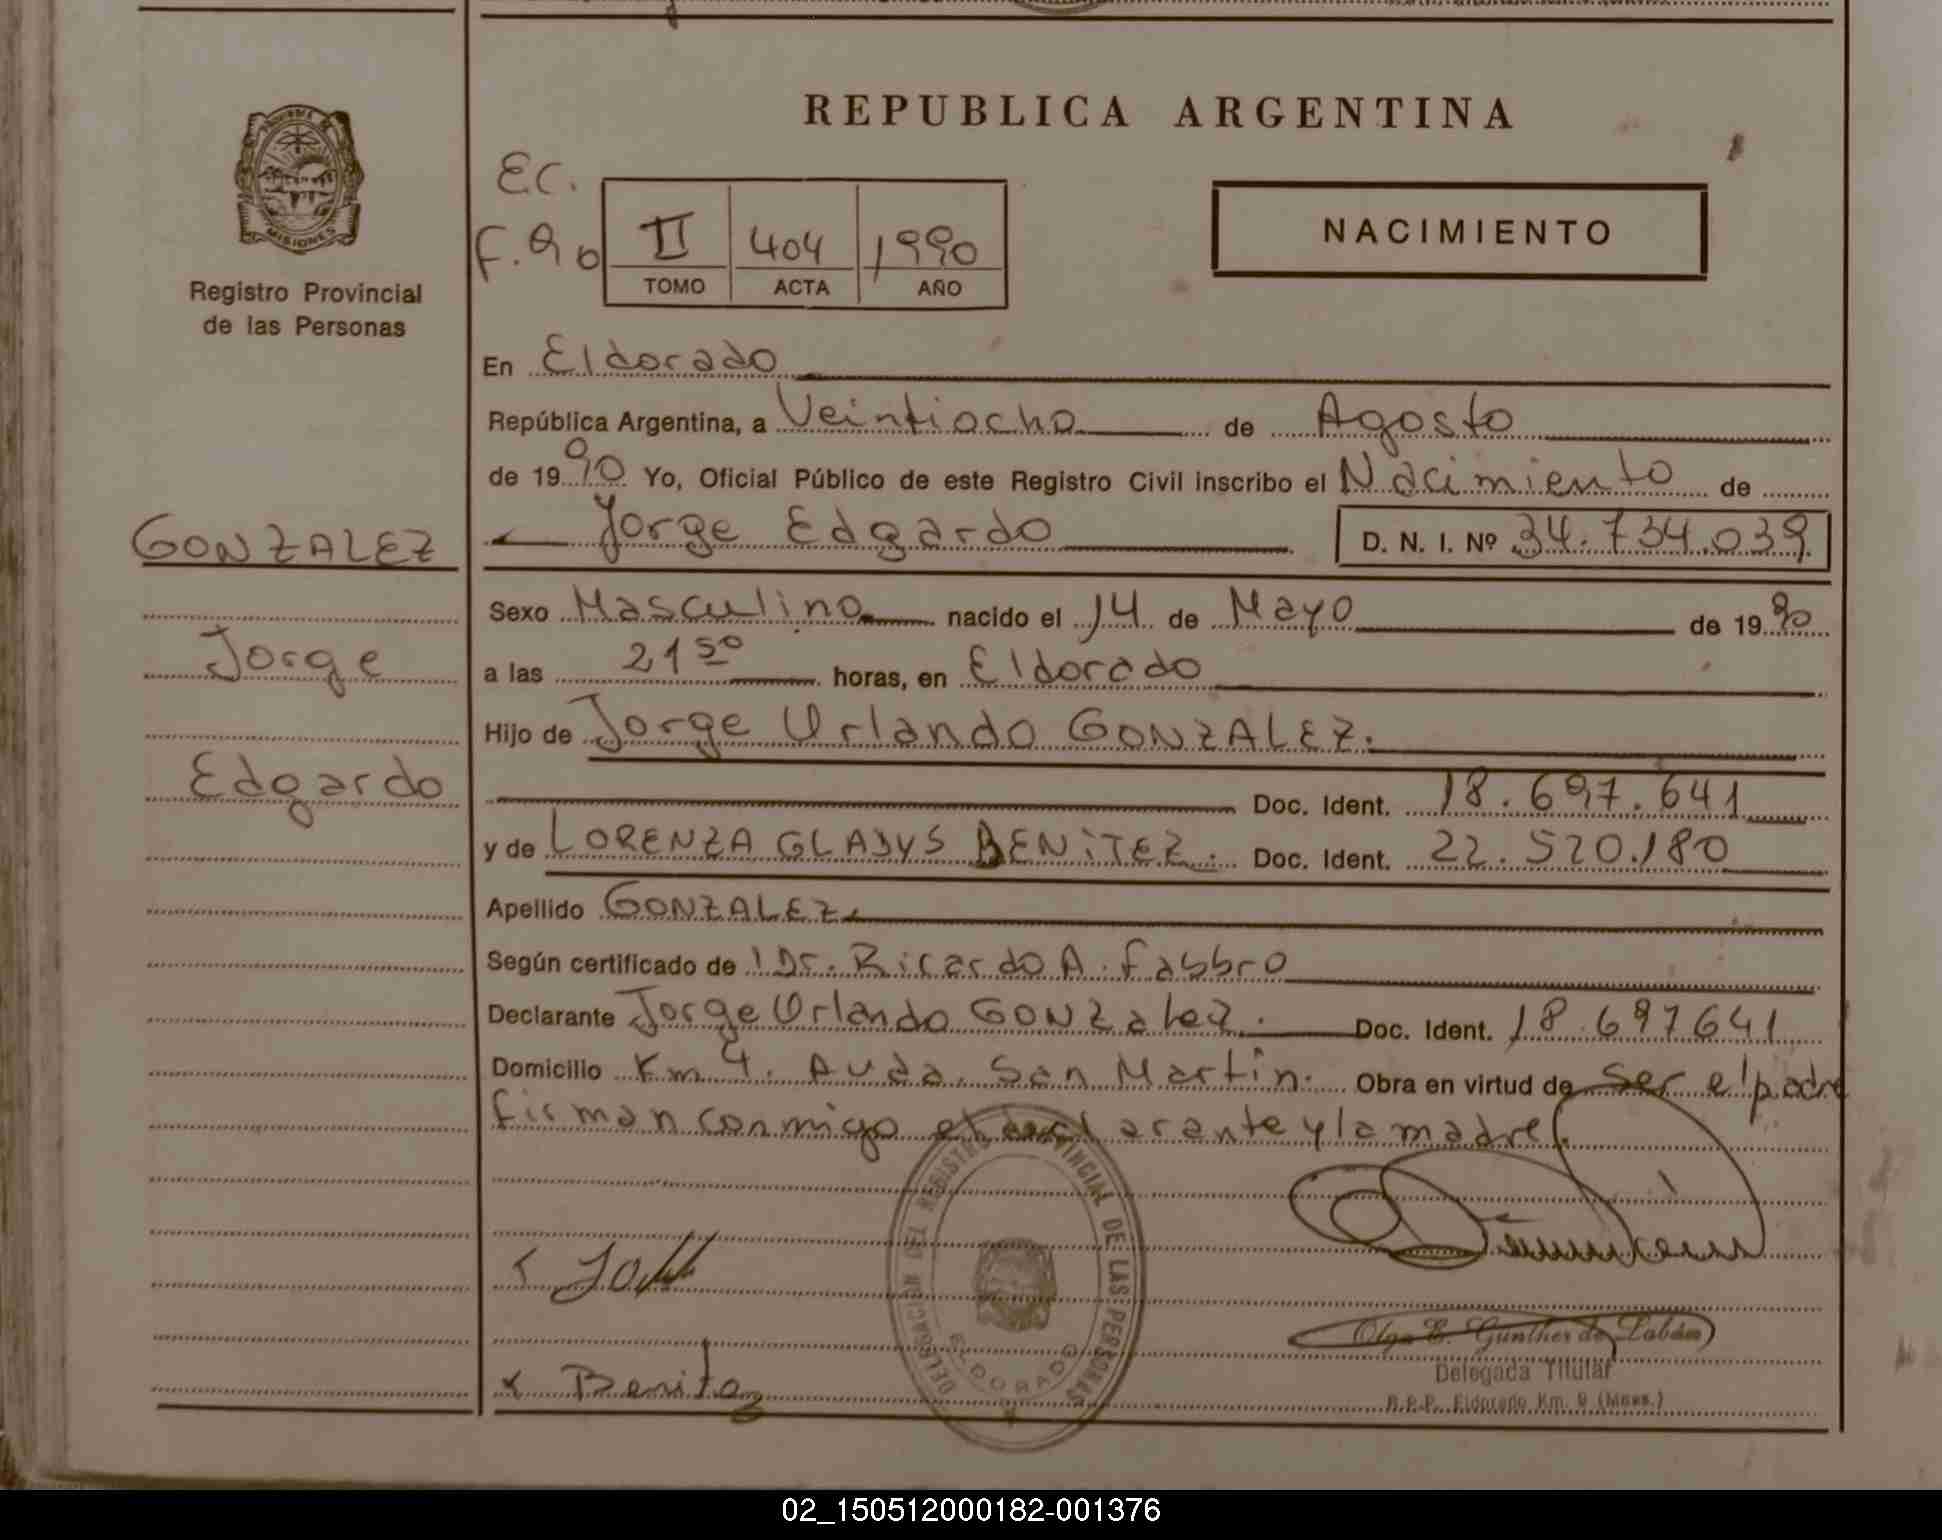 REPUBLICA ARGENTINA
MISIONES
Registro Provincial
de las Personas
EC.
F. 90
II 404 1990
TOMO ACTA AÑO
NACIMIENTO
En Eldorado
República Argentina, a Veintiocho de Agosto
de 1990 Yo, Oficial Público de este Registro Civil inscribo el Nacimiento de
GONZALEZ
Jorge Edgardo D. N. I. Nº 34.734.039
Sexo Masculino nacido el 14 de Mayo de 1990
Jorge
a las 21 50 horas, en Eldorado
Hijo de Jorge Orlando GONZALEZ.
Edgardo
Doc. Ident. 18.697.641
y de LORENZA GLADYS BENITEZ. Doc. Ident. 22.520.180
Apellido GONZALEZ.
Según certificado de Dr. Ricardo A. Fabbro
Declarante Jorge Orlando GONZalez. Doc. Ident. 18.697641
Domicilio Km 4. Avda. San Martin. Obra en virtud de ser el padre
firman conmigo el declarante y la madre.
DELEGACION DEL REGISTRO PROVINCIAL DE LAS PERSONAS
ELDORADO
Benitez
Olga E. Gunther de Labán
Delegada Titular
R.P.P. Eldorado Km. 9 (Mnes.)
02_150512000182-001376